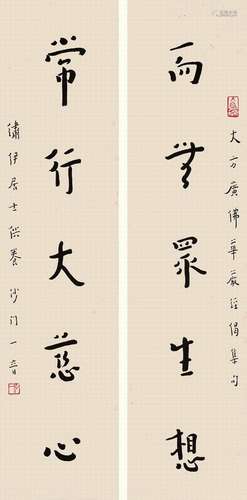 大方廣佛華嚴經偈集句
而無眾生想
常行大慈心
繡伊居士供養 沙门一音